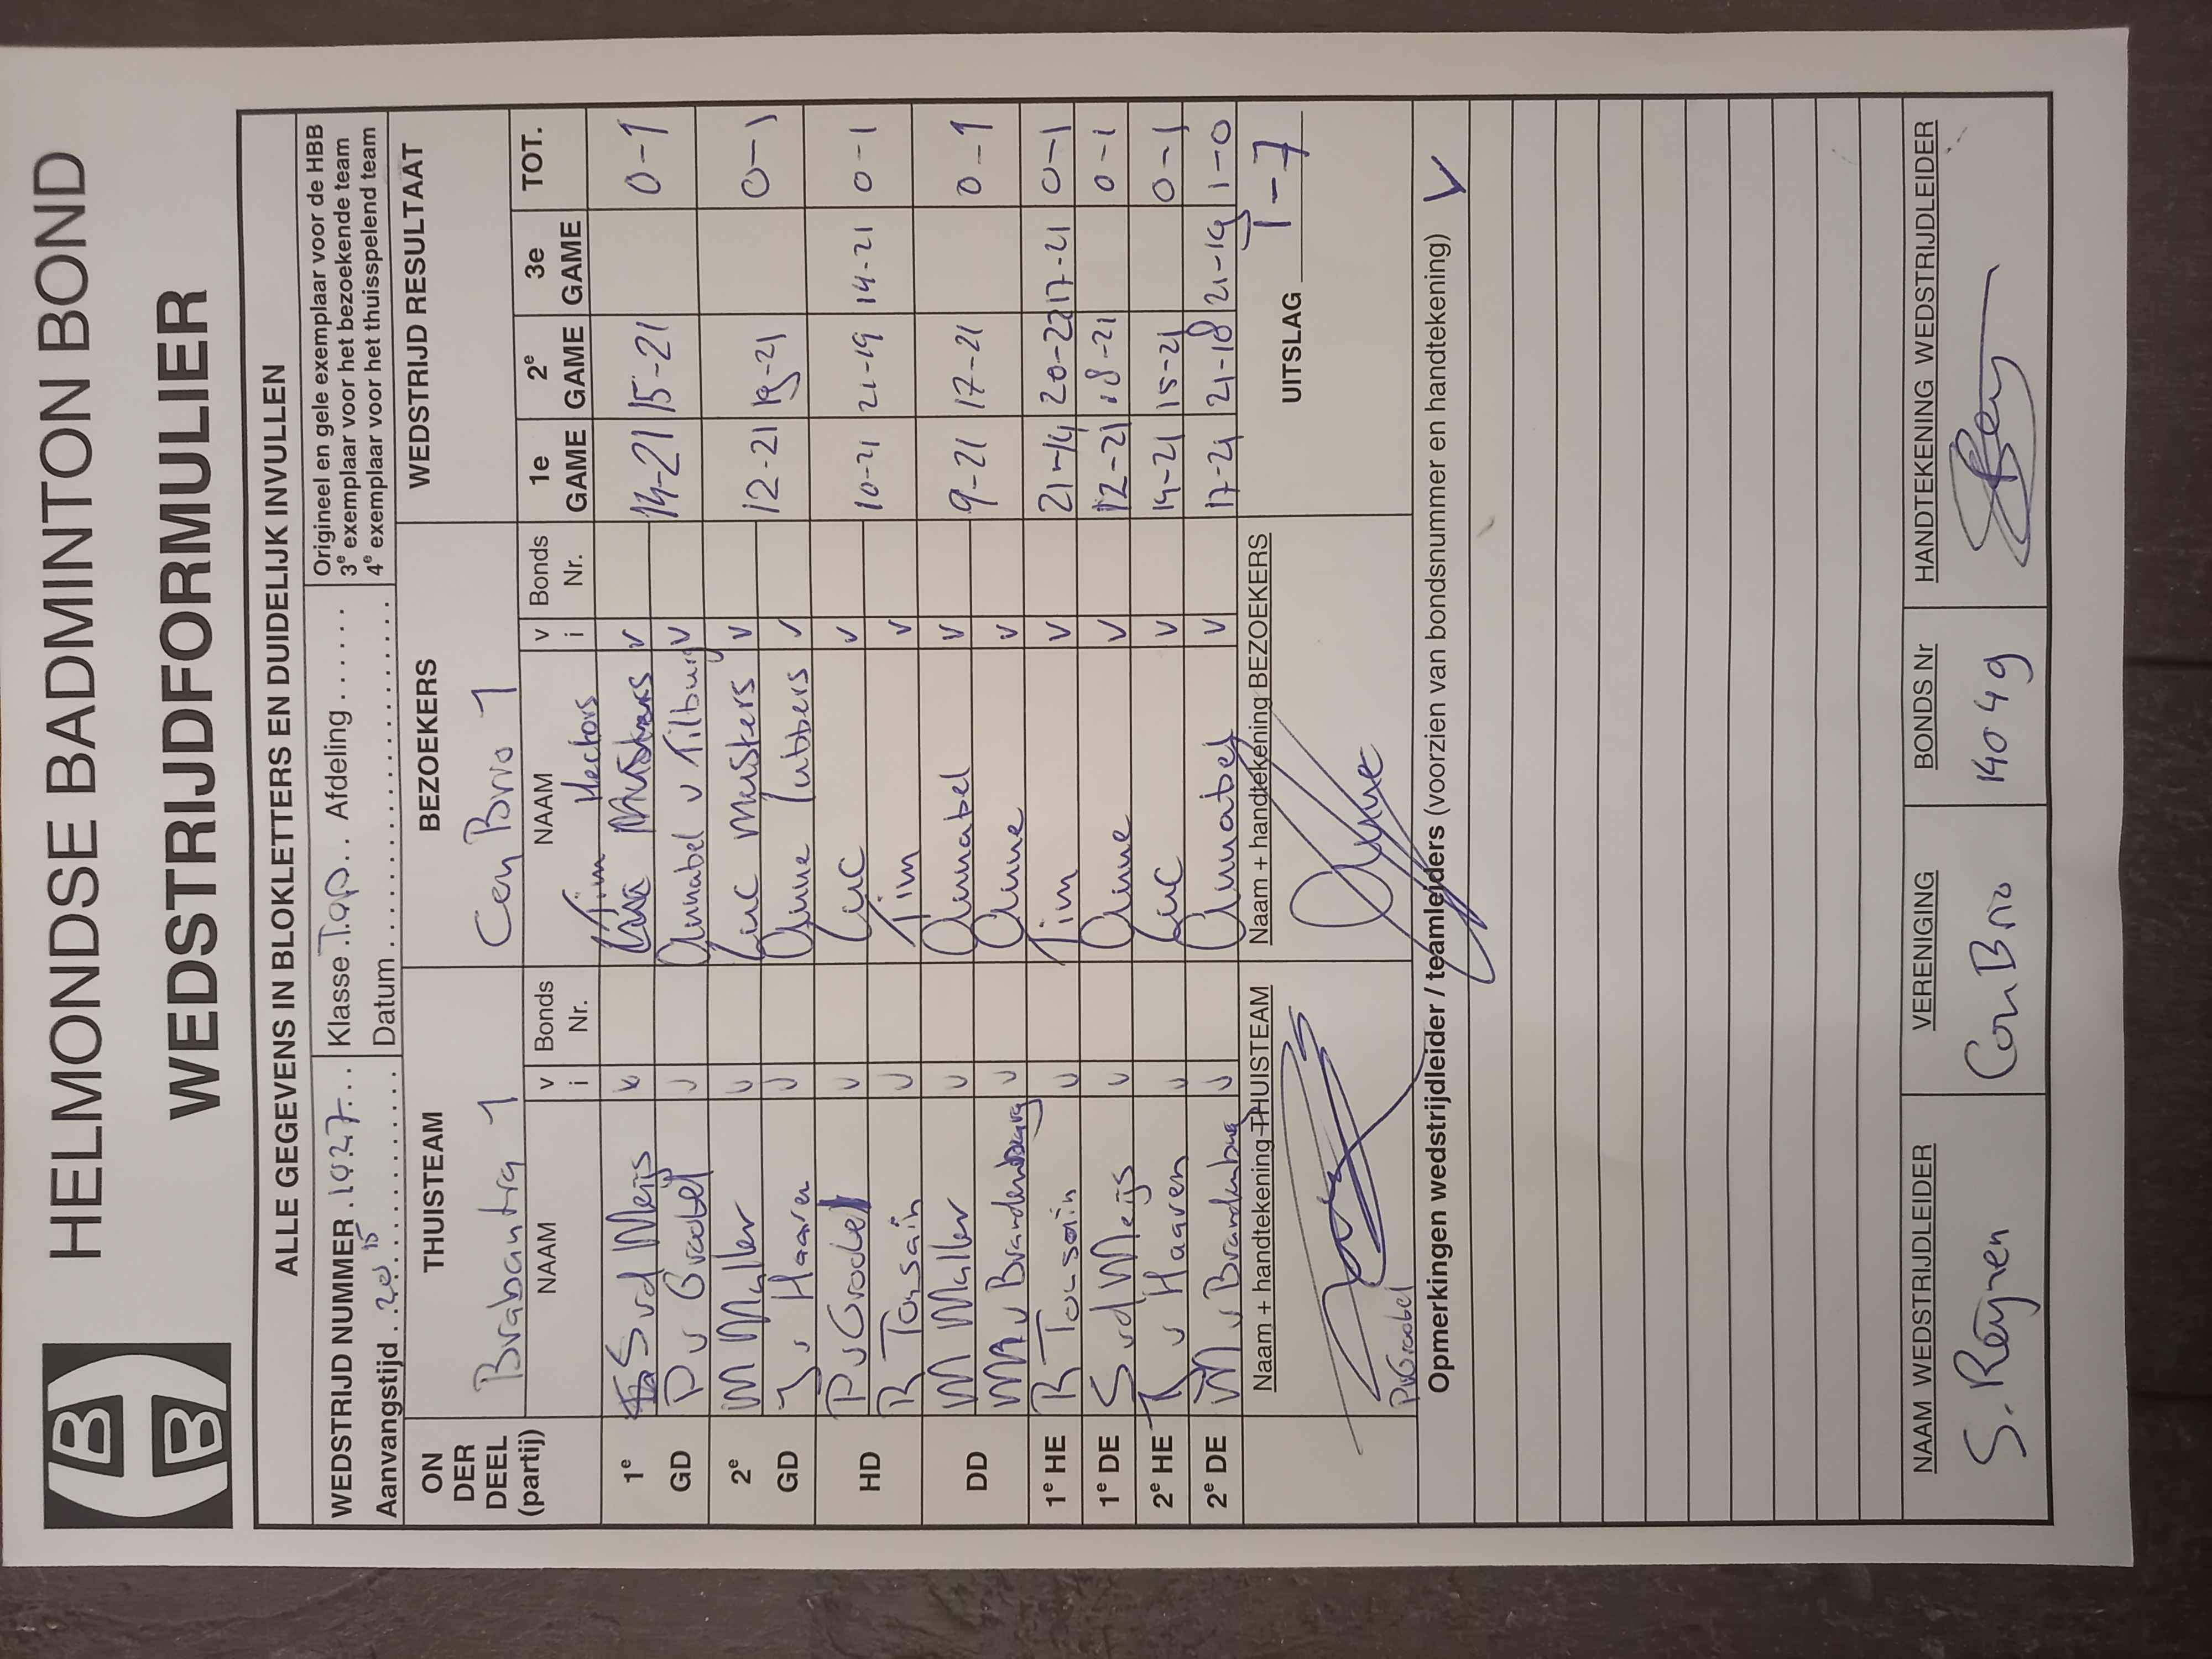 HELMONDSE BADMINTON BOND
WEDSTRIJDFORMULIER
ALLE GEGEVENS IN BLOKLETTERS EN DUIDELIJK INVULLEN
WEDSTRIJD NUMMER 1927 Klasse Top Afdeling
Aanvangstijd 20 15 Datum
Origineel en gele exemplaar voor de HBB
3e exemplaar voor het bezoekende team
4e exemplaar voor het thuisspelend team
ON DER DEEL (partij) THUISTEAM BEZOEKERS WEDSTRIJD RESULTAAT
Brabantia 1 Con Brio 1
NAAM v i Bonds Nr. NAAM v i Bonds Nr. 1e GAME 2e GAME 3e GAME TOT.
1e GD S vd Meijs v Tim Hectors v 14-21 15-21 0-1
P v Grootel v Annabel v Tilburg v
2e GD M Muller v Luc Musters v 12-21 19-21 0-1
J v Haaren v Anne lubbers v
HD P v Grootel v Luc v 10-21 21-19 14-21 0-1
R Tousain v Tim v
DD M Muller v Annabel v 9-21 17-21 0-1
M v Brandenburg v Anne v
1e HE R Tousain v Tim v 21-14 20-22 17-21 0-1
1e DE S vd Meijs v Anne v 12-21 18-21 0-1
2e HE J v Haaren v Luc v 14-21 15-21 0-1
2e DE M v Brandenburg v Annabel v 17-21 21-18 21-19 1-0
Naam + handtekening THUISTEAM Naam + handtekening BEZOEKERS
UITSLAG 1-7
PvGrootel Anne
Opmerkingen wedstrijdleider / teamleiders (voorzien van bondsnummer en handtekening) V
NAAM WEDSTRIJDLEIDER VERENIGING BONDS Nr HANDTEKENING WEDSTRIJDLEIDER
S. Reijnen Con Brio 14049